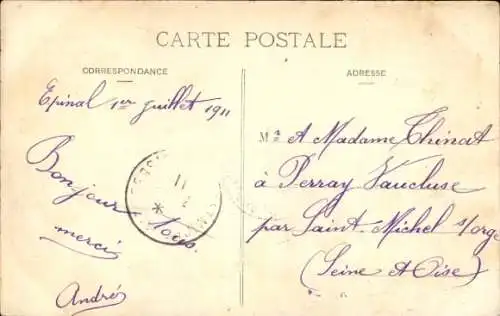 CARTE POSTALE
CORRESPONDANCE
ADRESSE
Epinal 1er juillet 1911
Bonjour
à tous.
merci
André
Mr et Madame Thinat
à Perray Vaucluse
par Saint-Michel s/orge
(Seine et Oise)
11